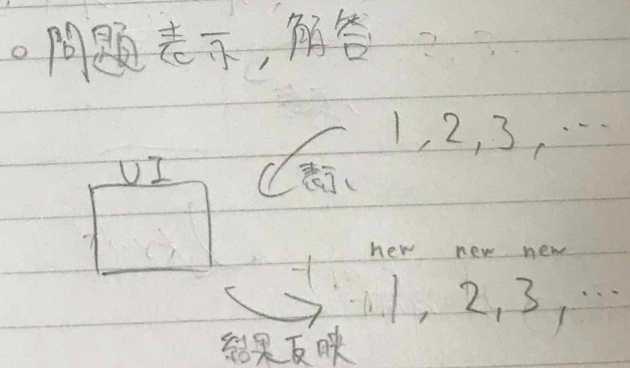 。問題表示，解答
1, 2, 3, …
UI
表示
new new new
1, 2, 3, …
結果反映